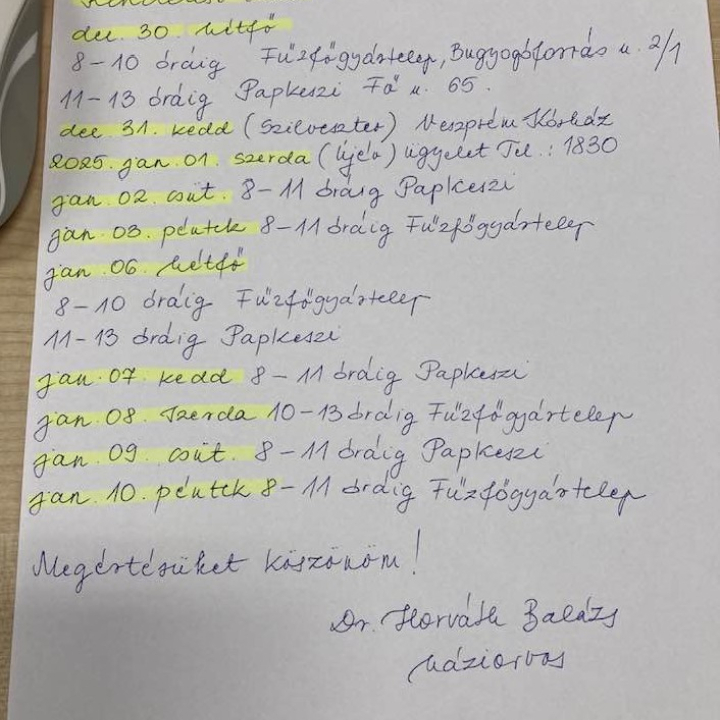 dec. 30. hétfő
8-10 óráig Fűzfőgyártelep, Bugyogóforrás u. 2/1
11-13 óráig Papkeszi Fő u. 65.
dec 31. kedd (Szilveszter) Veszprém Kórház
2025. jan. 01. szerda (újév) ügyelet Tel.: 1830
jan 02. csüt. 8-11 óráig Papkeszi
jan. 03. péntek 8-11 óráig Fűzfőgyártelep
jan. 06. hétfő
8-10 óráig Fűzfőgyártelep
11-13 óráig Papkeszi
jan. 07. kedd 8-11 óráig Papkeszi
jan. 08. szerda 10-13 óráig Fűzfőgyártelep
jan. 09. csüt. 8-11 óráig Papkeszi
jan. 10. péntek 8-11 óráig Fűzfőgyártelep
Megértésüket köszönöm!
Dr. Horváth Balázs
háziorvos